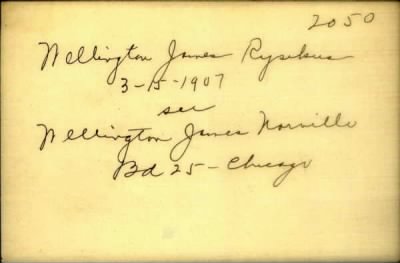 2050
Wellington James
3-15-1907
see
Wellington James Norville
Bd 25 - Chicago